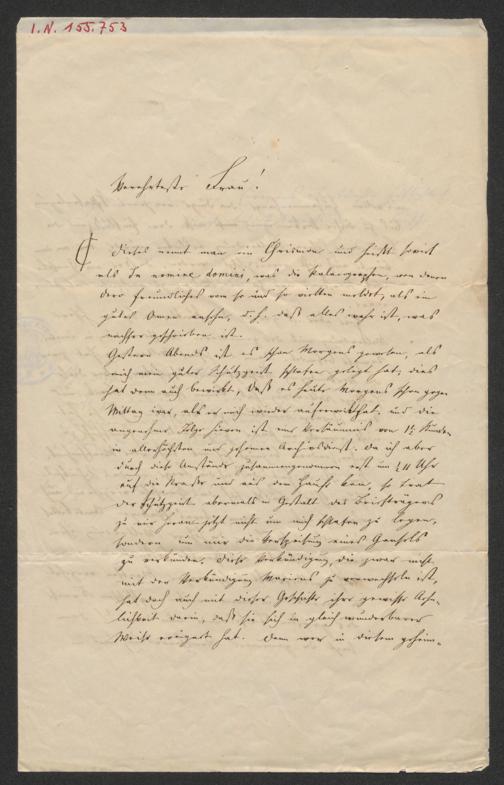 I.N. 155.753
Verehrteste Frau!
₵ Dieses nennt man ein Chrismon und heißt soviel
als In nomine domini, was die Palaeographen, von denen
dero freundliches von so und so vielten meldet, als ein
gutes Omen ansehen, d.h. daß alles wahr ist, was
nachher geschrieben ist.
Gestern Abends ist es schon Morgens geworden, als
mich mein guter Schutzgeist schlafen gelegt hat; dies
hat denn auch bewirkt, daß es heute Morgens schon gegen
Mittag war, als er mich wieder auferweckt hat; und die
angenehme Folge hievon ist eine Versäumnis von 1½ Stunden
im allerhöchsten und geheimen Archivsdienst. Da ich aber
durch diese Umstände zusammengenommen erst um ½11 Uhr
auf die Straße und aus dem Hause kam, so trat
der Schutzgeist abermals in Gestalt des Briefträgers
zu mir heran jetzt nicht um mich schlafen zu legen,
sondern um mir die Verspeisung eines Gansels
zu verkünden. Diese Verkündigung, die zwar nicht
mit der Verkündigung Mariens zu verwechseln ist,
hat doch auch mit dieser Geschichte ihre gewisse Aehn-
lichkeit darin, daß sie sich in gleich wunderbarer
Weise ereignet hat. Denn wer in diesem geheim-